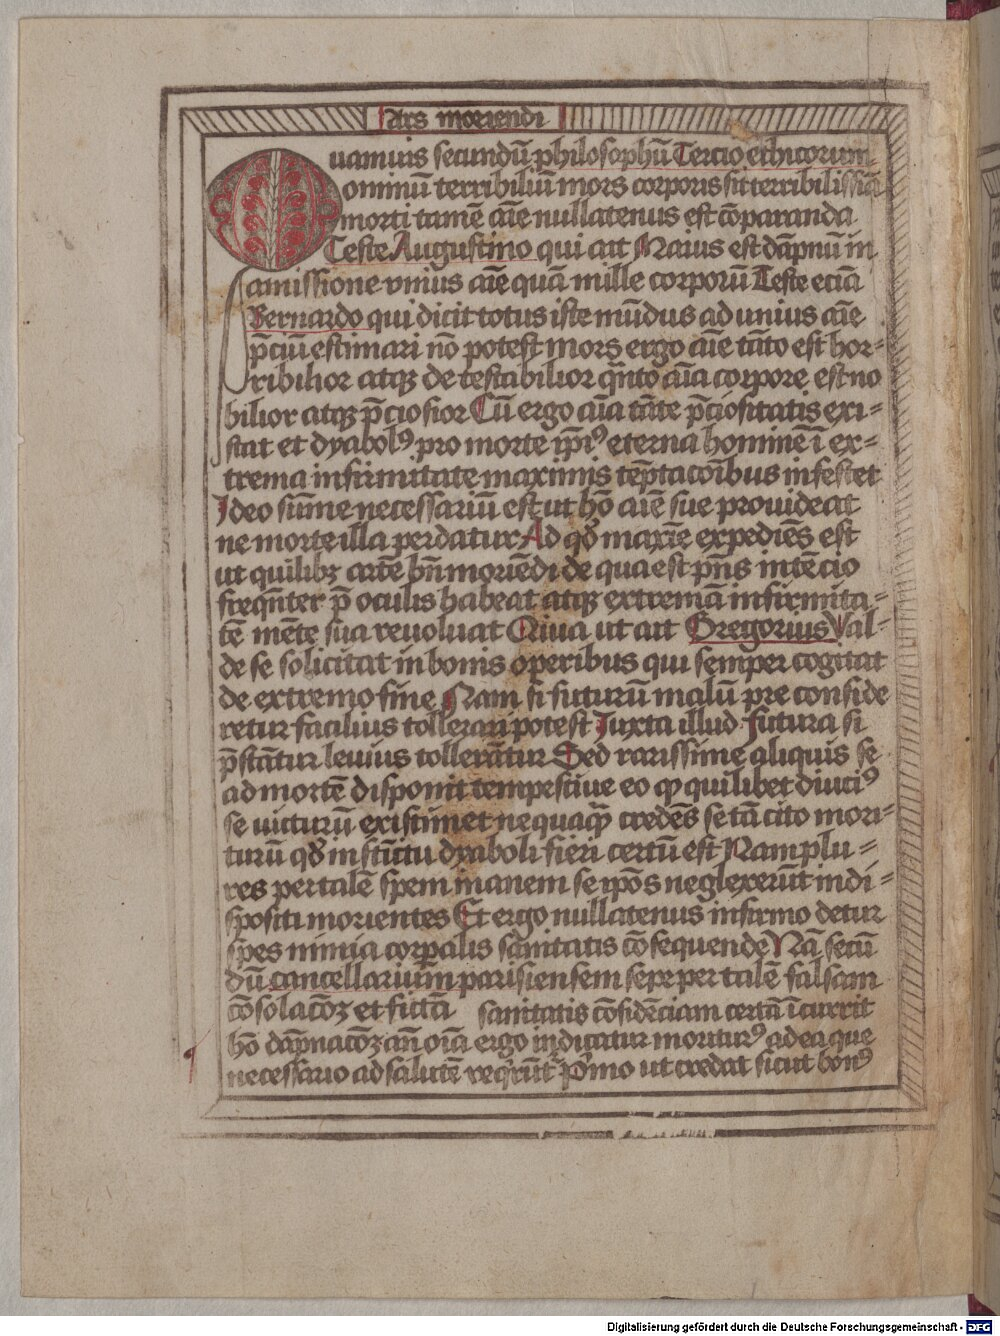 Ars moriendi
Quamuis secundū philosophū Tercio ethicorum
omninū terribiliū mors corporis sit terribilissīa
morti tamē aīe nullatenus est cōparanda
Teste Augustino qui ait Maius est dāpnū in
amissione vnius aīe quā mille corporū Teste eciā
Bernardo qui dicit totus iste mūdus ad unius aīe
p̄ciū estimari nō potest mors ergo aīe tāto est hor=
ribilior atqȝ de testabilior qn̄to aīa corpore est no
bilior atqȝ p̄ciosior Cū ergo aīa tāte p̄ciositatis exi=
stat et dyabolꝰ pro morte ip̄iꝰ eterna hominē ī ex=
trema infirmitate maximis tēptacōibus infestet
Ideo sūme necessariū est ut hō aīe sue prouideat
ne morte illa perdatur Ad qd̄ maxīe expediēs est
ut quilibȝ artē bn̄ moriēdi de qua est pn̄s intēcio
freqn̄ter p̄ oculis habeat atqȝ extremā infirmita=
tē mēte sua reuoluat Quia ut ait Gregorius Val=
de se solicitat in bonis operibus qui semper cogitat
de extremo fine Nam si futurū malū pre conside
retur facilius tollerari potest Juxta illud futura si
p̄stātur leuius tollerātur Sed rarissime aliquis se
ad mortē disponit tempestiue eo ꝙ quilibet diuciꝰ
se victurū existimet nequaqͣ credēs se tā cito mori=
turū qd̄ instīctu dyaboli fieri certū est Nam plu=
res per talē spem inanem se ip̄os neglexerūt indi=
spositi morientes Et ergo nullatenus infirmo detur
spes nimia corꝑalis sānitatis cōsequende Nā secū
dū cancellariū parisiensem sepe per talē falsam
cōsolacōȝ et fictā sanitatis cōfidēciam certā īcurrit
hō dāpnacōȝ an̄ oīa ergo inducatur moriturꝰ ad ea que
necessario ad salutē reqͥrūtͬ Pͥmo ut credat sicut bonꝰ
Digitalisierung gefördert durch die Deutsche Forschungsgemeinschaft - DFG